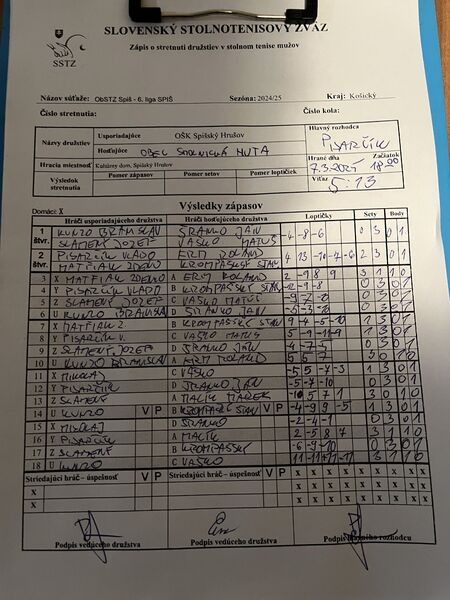 SLOVENSKÝ STOLNOTENISOVÝ ZVÄZ
Zápis o stretnutí družstiev v stolnom tenise mužov
SSTZ
Názov súťaže: ObSTZ Spiš - 6. liga SPIŠ Sezóna: 2024/25 Kraj: Košický
Číslo stretnutia: Číslo kola:
Názvy družstiev Usporiadajúce OŠK Spišský Hrušov Hlavný rozhodca
Hosťujúce OBEC SMOLNICKÁ HUTA PISARČÍK
Hracia miestnosť Kultúrny dom, Spišský Hrušov Hrané dňa Začiatok
Výsledok stretnutia Pomer zápasov Pomer setov Pomer loptičiek 7.3.2025 18:00
Víťaz 5:13
Výsledky zápasov
Domáci: X
Hráči usporiadajúceho družstva Hráči hosťujúceho družstva Loptičky Sety Body
1 štvr. KUNZO BRANISLAV SRANKO JÁN -4 -8 -6 0 3 0 1
SLAMENÝ JOZEF VAŠKO MATÚŠ
2 štvr. PISARČÍK VLADO ERM ROLAND 4 13 -10 -4 -6 2 3 0 1
MATFIAK ZDENO KROMPASKÝ STAN
3 X MATFIAK ZDENO A ERM ROLAND 2 -9 8 9 3 1 1 0
4 Y PISARČÍK VLADO B KROMPASKÝ STAN -12 -9 -8 0 3 0 1
5 Z SLAMENÝ JOZEF C VAŠKO MATÚŠ -9 -7 -10 0 3 0 1
6 U KUNZO BRANISLAV D SRANKO JÁN 0 3 0 1
7 X MATFIAK Z. B KROMPASKÝ STAN 1 3 0 1
8 Y PISARČÍK V. C VAŠKO MATÚŠ 1 3 0 1
9 Z SLAMENÝ JOZEF D SRANKO JÁN -4 -7 -5 0 3 0 1
10 U KUNZO BRANISLAV A ERM ROLAND 5 5 7 3 0 1 0
11 X MIKOLAJ C VAŠKO -5 5 -7 -3 1 3 0 1
12 Y PISARČÍK D SRANKO JÁN -5 -7 -10 0 3 0 1
13 Z SLAMENÝ A MALÍK MAREK -10 5 7 1 3 1 1 0
14 U KUNZO V P B KROMPASKÝ STAN V P -4 -9 9 -5 1 3 0 1
15 X MIKOLAJ D SRANKO -2 -4 -1 0 3 0 1
16 Y PISARČÍK A MALÍK 2 -5 8 7 3 1 1 0
17 Z SLAMENÝ B KROMPASKÝ -6 -9 -10 0 3 0 1
18 U KUNZO C VAŠKO 3 1 1 0
Striedajúci hráč - úspešnosť V P Striedajúci hráč - úspešnosť V P X X X X X X X X X
X X X X X X X X X X
X X X X X X X X X X
Podpis vedúceho družstva Podpis vedúceho družstva Podpis hlavného rozhodcu